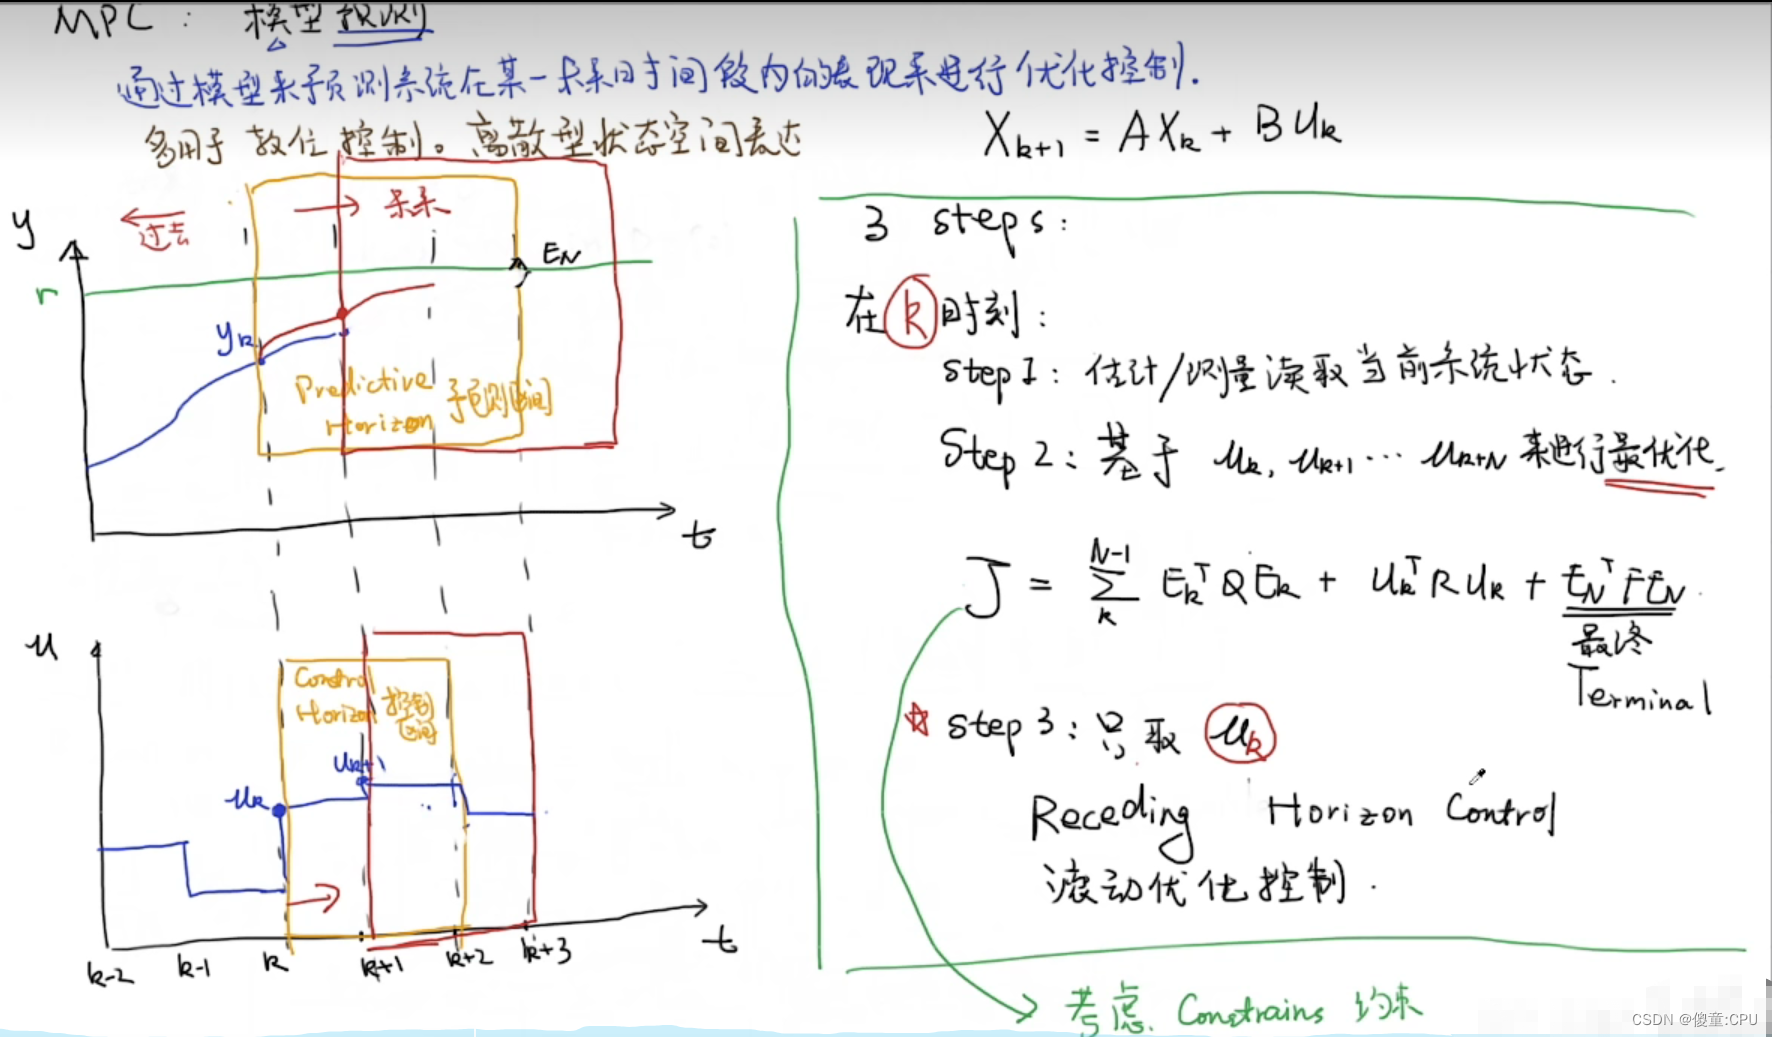 MPC : 模型预测
通过模型来预测系统在某一未来时间段内的表现来进行优化控制.
多用于数位控制。离散型状态空间表达
X_{k+1} = A X_k + B U_k
过去
未来
y
r
E_N
y_k
Predictive
Horizon 预测区间
t
u
Control
Horizon 控制
区间
u_k
u_{k+1}
k-2 k-1 k k+1 k+2 k+3
t
3 steps:
在 k 时刻:
step 1: 估计/测量读取当前系统状态.
Step 2: 基于 u_k, u_{k+1} ... u_{k+N} 来进行最优化.
J = \sum_k^{N-1} E_k^T Q E_k + U_k^T R U_k + E_N^T F E_N
最终
Terminal
☆ step 3: 只取 u_k
Receding Horizon Control
滚动优化控制.
考虑. Constrains 约束
CSDN @傻童:CPU